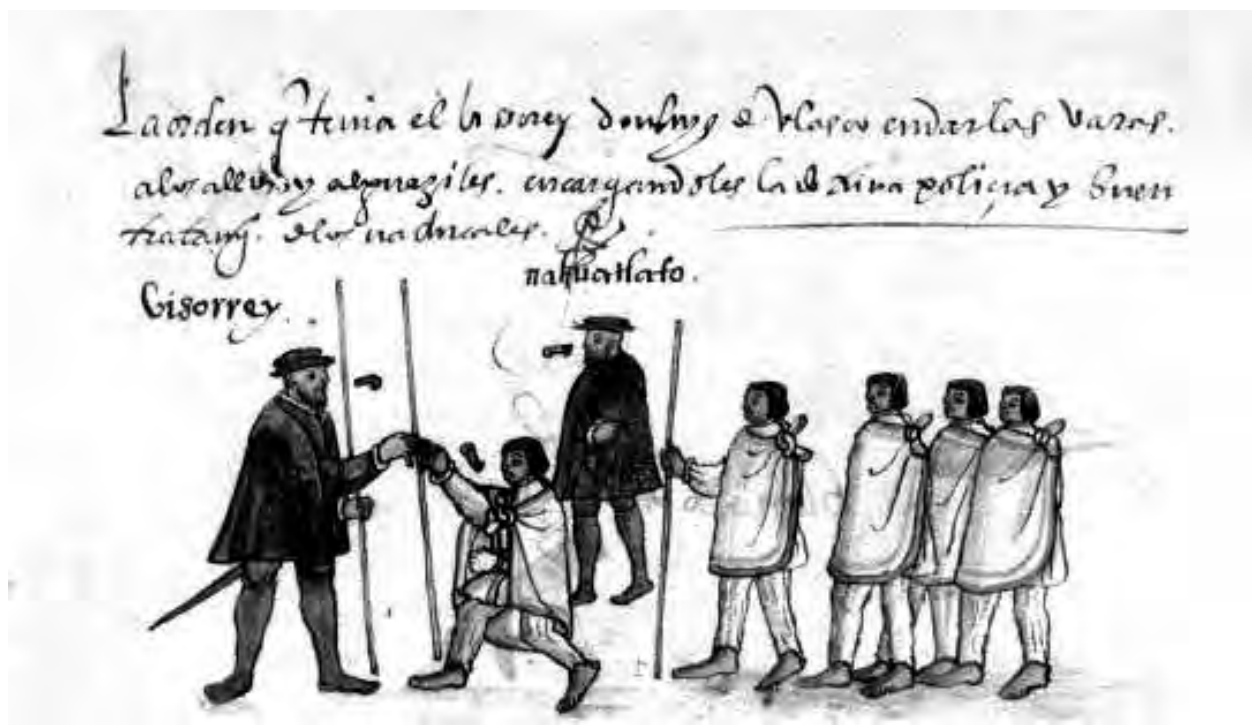 La orden q̃ tenia el bisorrey don luys de velasco en dar las varas.
a los alldes y alguaziles. encargandoles la dotrina poliçia y buen
tratamy°. de los naturales.
nahuatlato.
Visorrey.